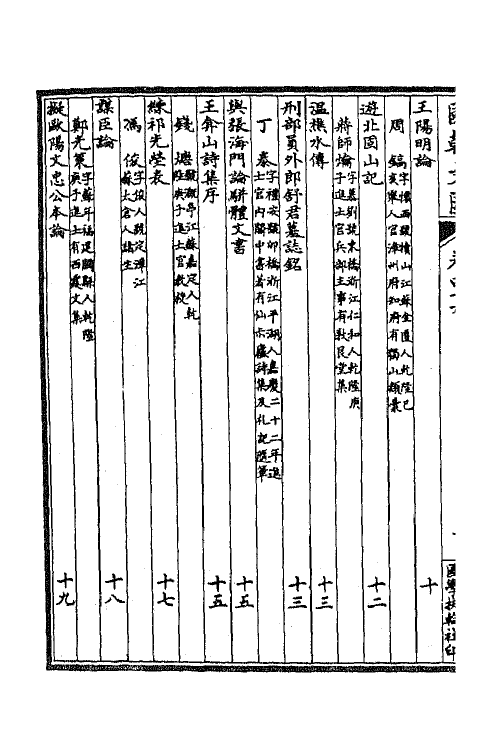 國朝文匯 卷四十六
國學扶輪社印
王陽明論 十
周鎬 字懷西號犢山江蘇金匱人乾隆己亥舉人官漳州府知府有犢山類稾
遊北固山記 十二
蔣師爚 字慕劉號東橋浙江仁和人乾隆庚子進士官兵部主事有敦艮堂集
溫樵水傳 十三
刑部員外郎舒君墓誌銘 十三
丁泰 字禮安號卯橋浙江平湖人嘉慶二十二年進士官内閣中書著有仙木廬詩集及札記隨筆
與張海門論駢體文書 十五
王弇山詩集序 十五
錢塘 號溉亭江蘇嘉定人乾隆庚子進士官教授
練祁先塋表 十七
馮俊 字俊人號定遠江蘇太倉人諸生
謀臣論 十八
鄭光策 字蘇年福建閩縣人乾隆庚子進士有西霞文集
擬歐陽文忠公本論 十九